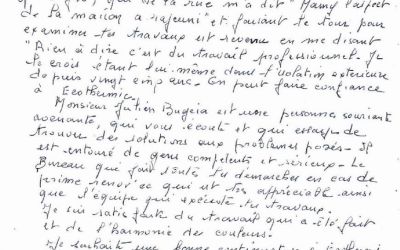 qui de la rue m'a dit "Mamy l'aspect
de la maison a rajeuni" et faisant le tour pour
examiner les travaux est revenu en me disant
"Rien à dire c'est du travail professionnel. Je
le crois étant lui même dans l'isolation extérieure
depuis vingt cinq ans. On peut faire confiance
à Ecothermic.
Monsieur Julien Bugeia est une personne souriante
avenante, qui vous écoute et qui essaye de
trouver des solutions aux problèmes posés. Il
est entouré de gens compétents et sérieux. Le
Bureau qui fait toute les démarches en cas de
prime renov' ce qui est très appréciable ainsi
que l'équipe qui exécute les travaux.
Je suis satisfaite du travail qui a été fait
et de l'harmonie des couleurs.
Je souhaite une bonne